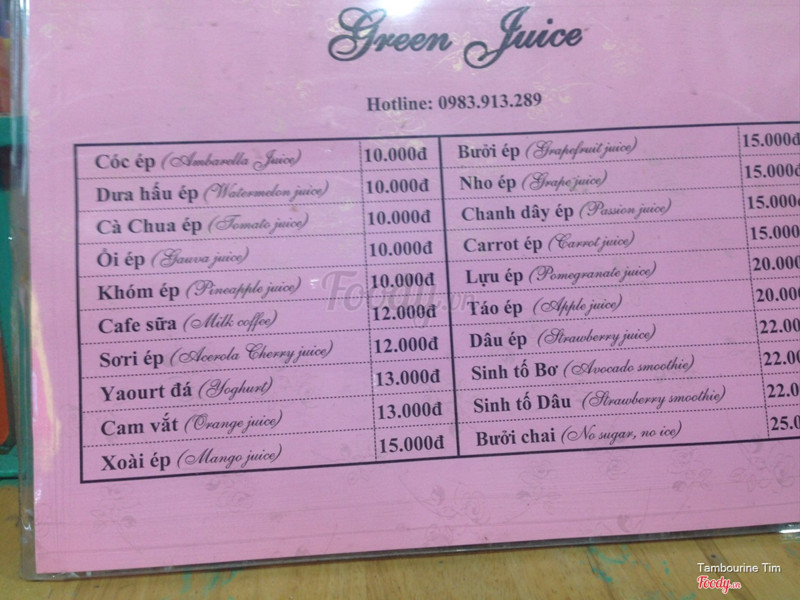 Green Juice
Hotline: 0983.913.289
Cóc ép (Ambarella Juice) 10.000đ
Dưa hấu ép (Watermelon juice) 10.000đ
Cà Chua ép (Tomato juice) 10.000đ
Ỏi ép (Gauva juice) 10.000đ
Khóm ép (Pineapple juice) 10.000đ
Cafe sữa (Milk coffee) 12.000đ
Sơri ép (Acerola Cherry juice) 12.000đ
Yaourt đá (Yoghurt) 13.000đ
Cam vắt (Orange juice) 13.000đ
Xoài ép (Mango juice) 15.000đ
Bưởi ép (Grapefruit juice) 15.000đ
Nho ép (Grape juice) 15.000đ
Chanh dây ép (Passion juice) 15.000
Carrot ép (Carrot juice) 15.000
Lựu ép (Pomegranate juice) 20.000
Táo ép (Apple juice) 20.000
Dâu ép (Strawberry juice) 22.000
Sinh tố Bơ (Avocado smoothie) 22.00
Sinh tố Dâu (Strawberry smoothie) 22.0
Bưởi chai (No sugar, no ice) 25.0
Foody.vn
Tambourine Tim
Foody.vn